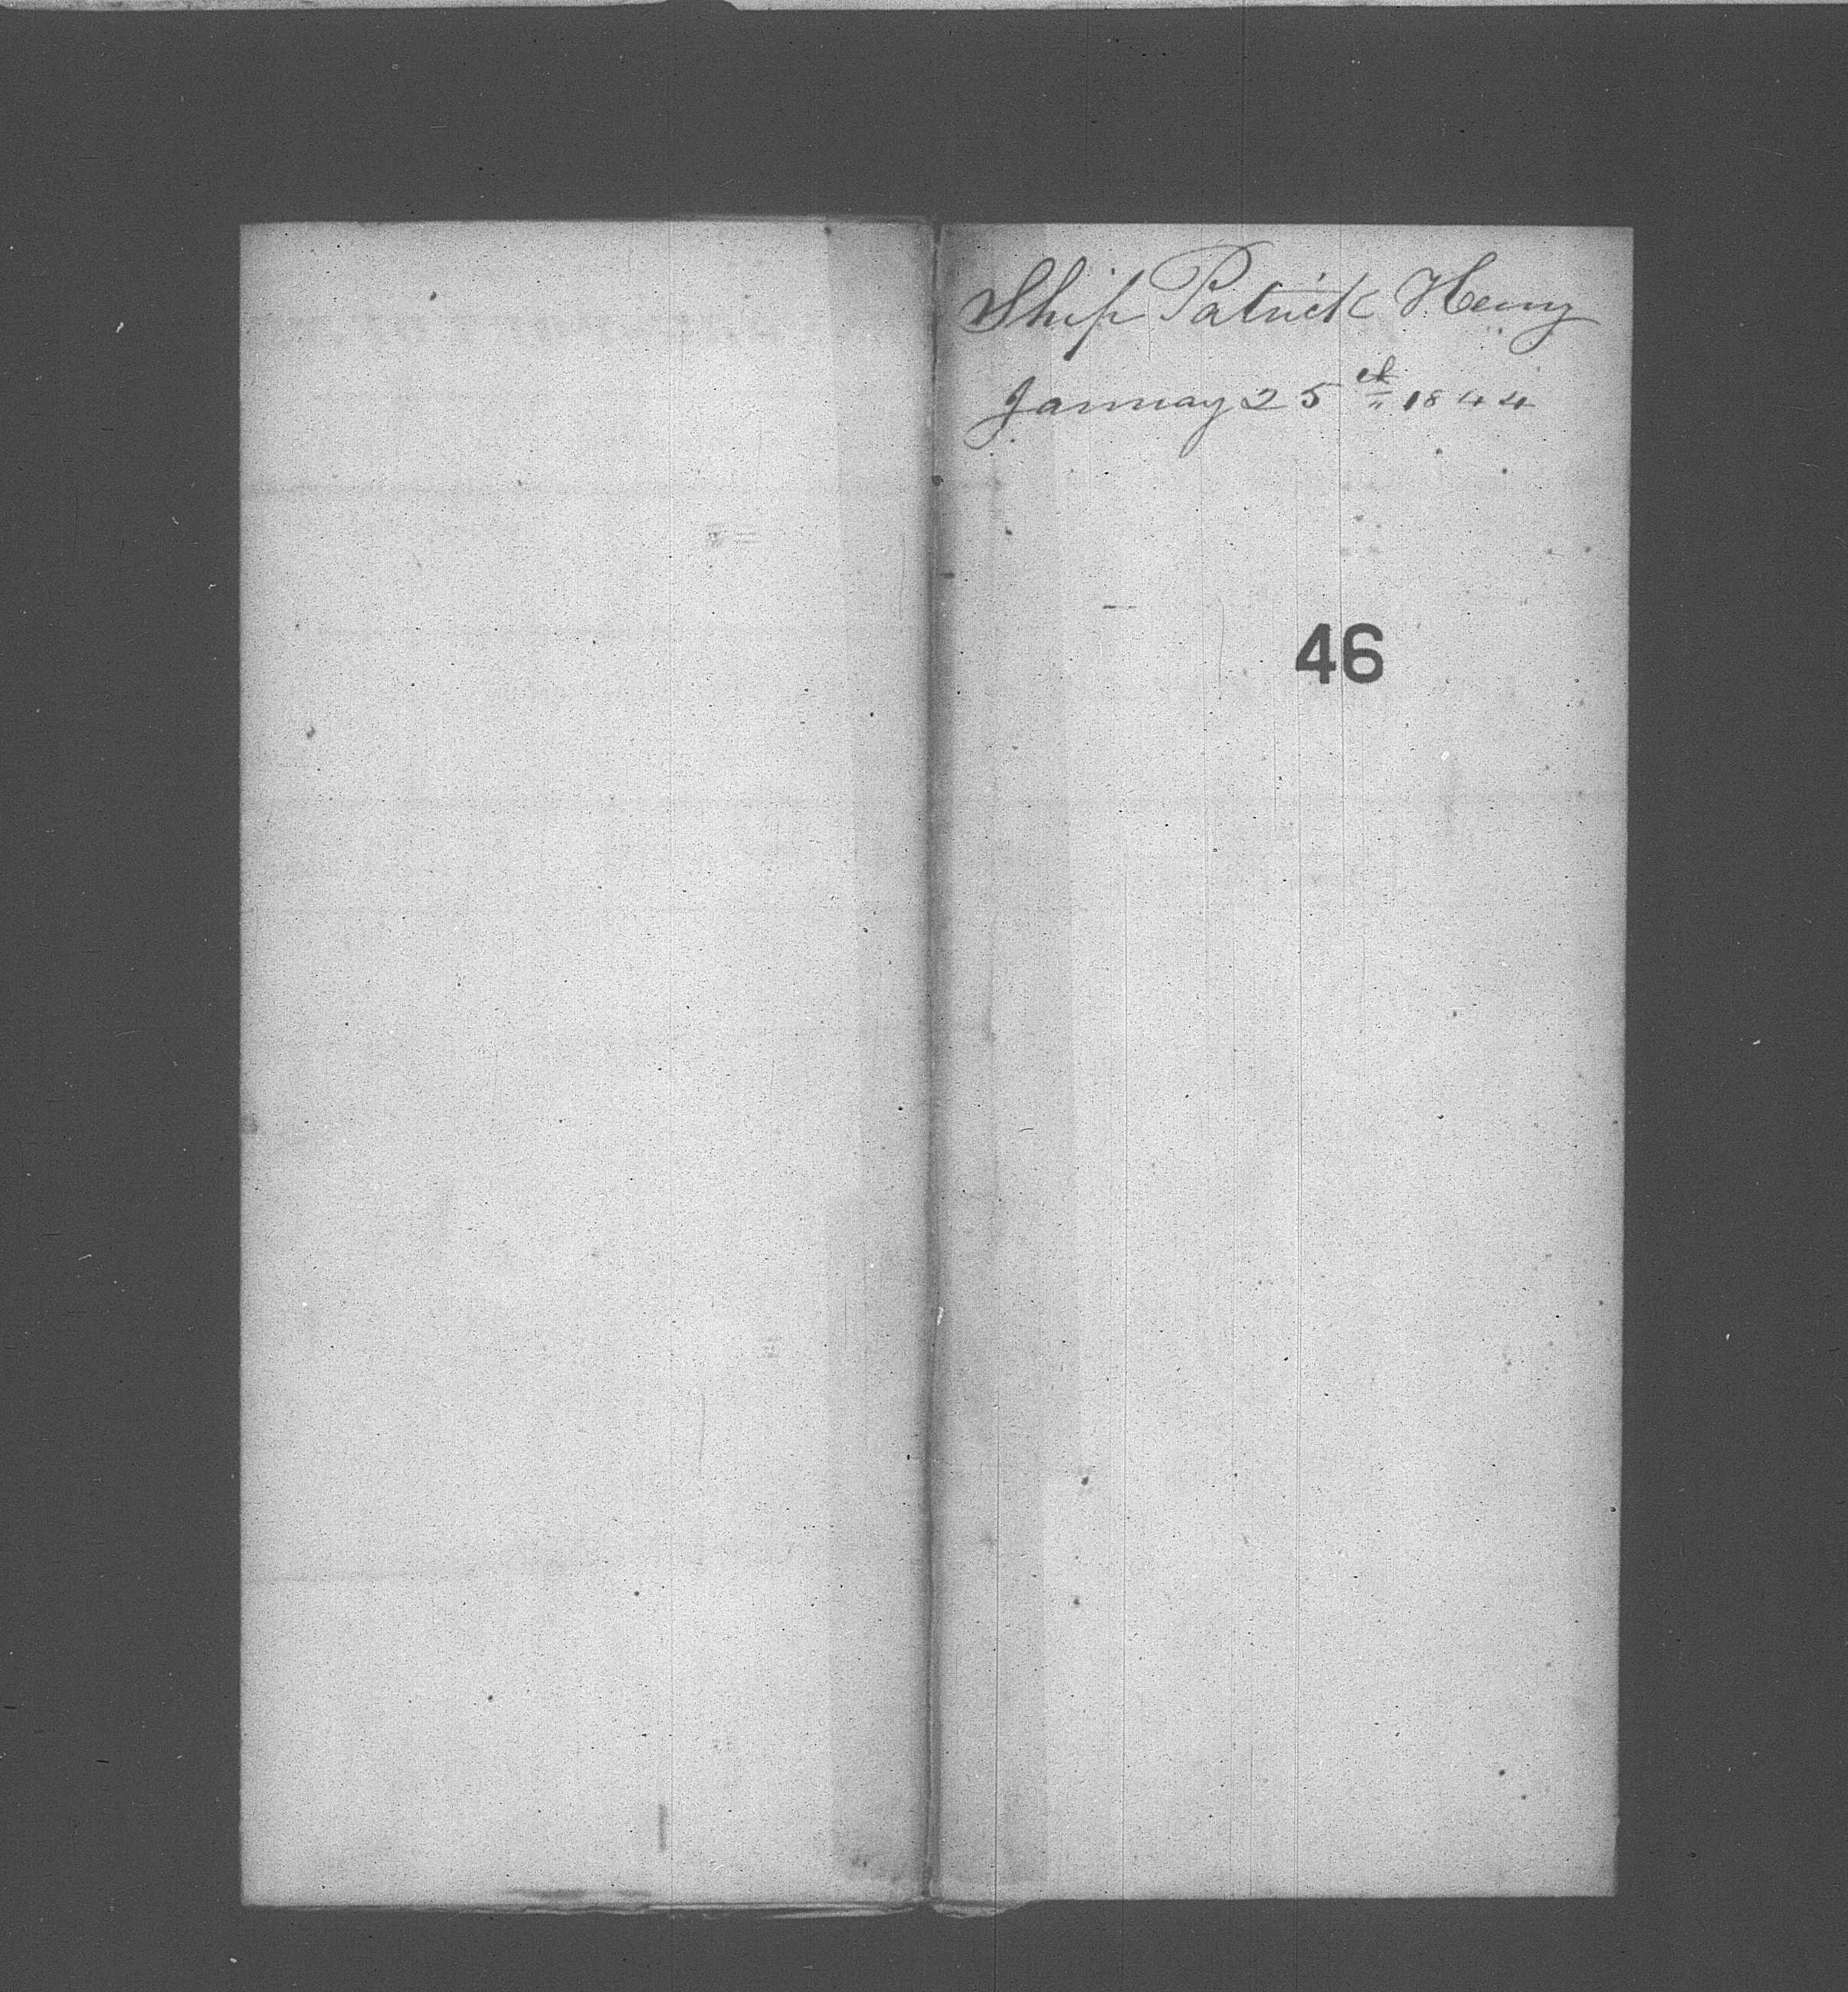 Ship Patrick Henry
January 25th 1844
46